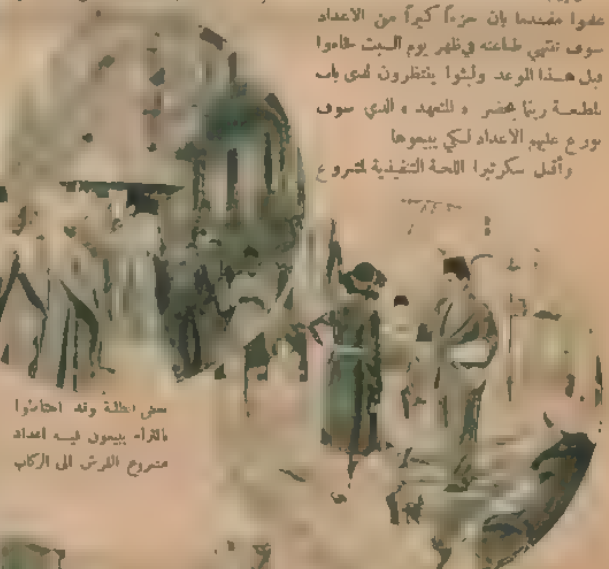 علموا مقدما بان جزءاً كبيراً من الاعداد
سوف تنتهي طباعته في ظهر يوم السبت فجاءوا
قبل هذا الموعد ولبثوا ينتظرون لدى باب
المطبعة ريثما يحضر « المتعهد » الذي سوف
يوزع عليهم الاعداد لكي يبيعوها
وأقبل سكرتيرا اللجنة التنفيذية لمشروع
بعض الطلبة وقد احتاطوا
بالترام يبيعون فيه اعداد
مشروع القرش الى الركاب